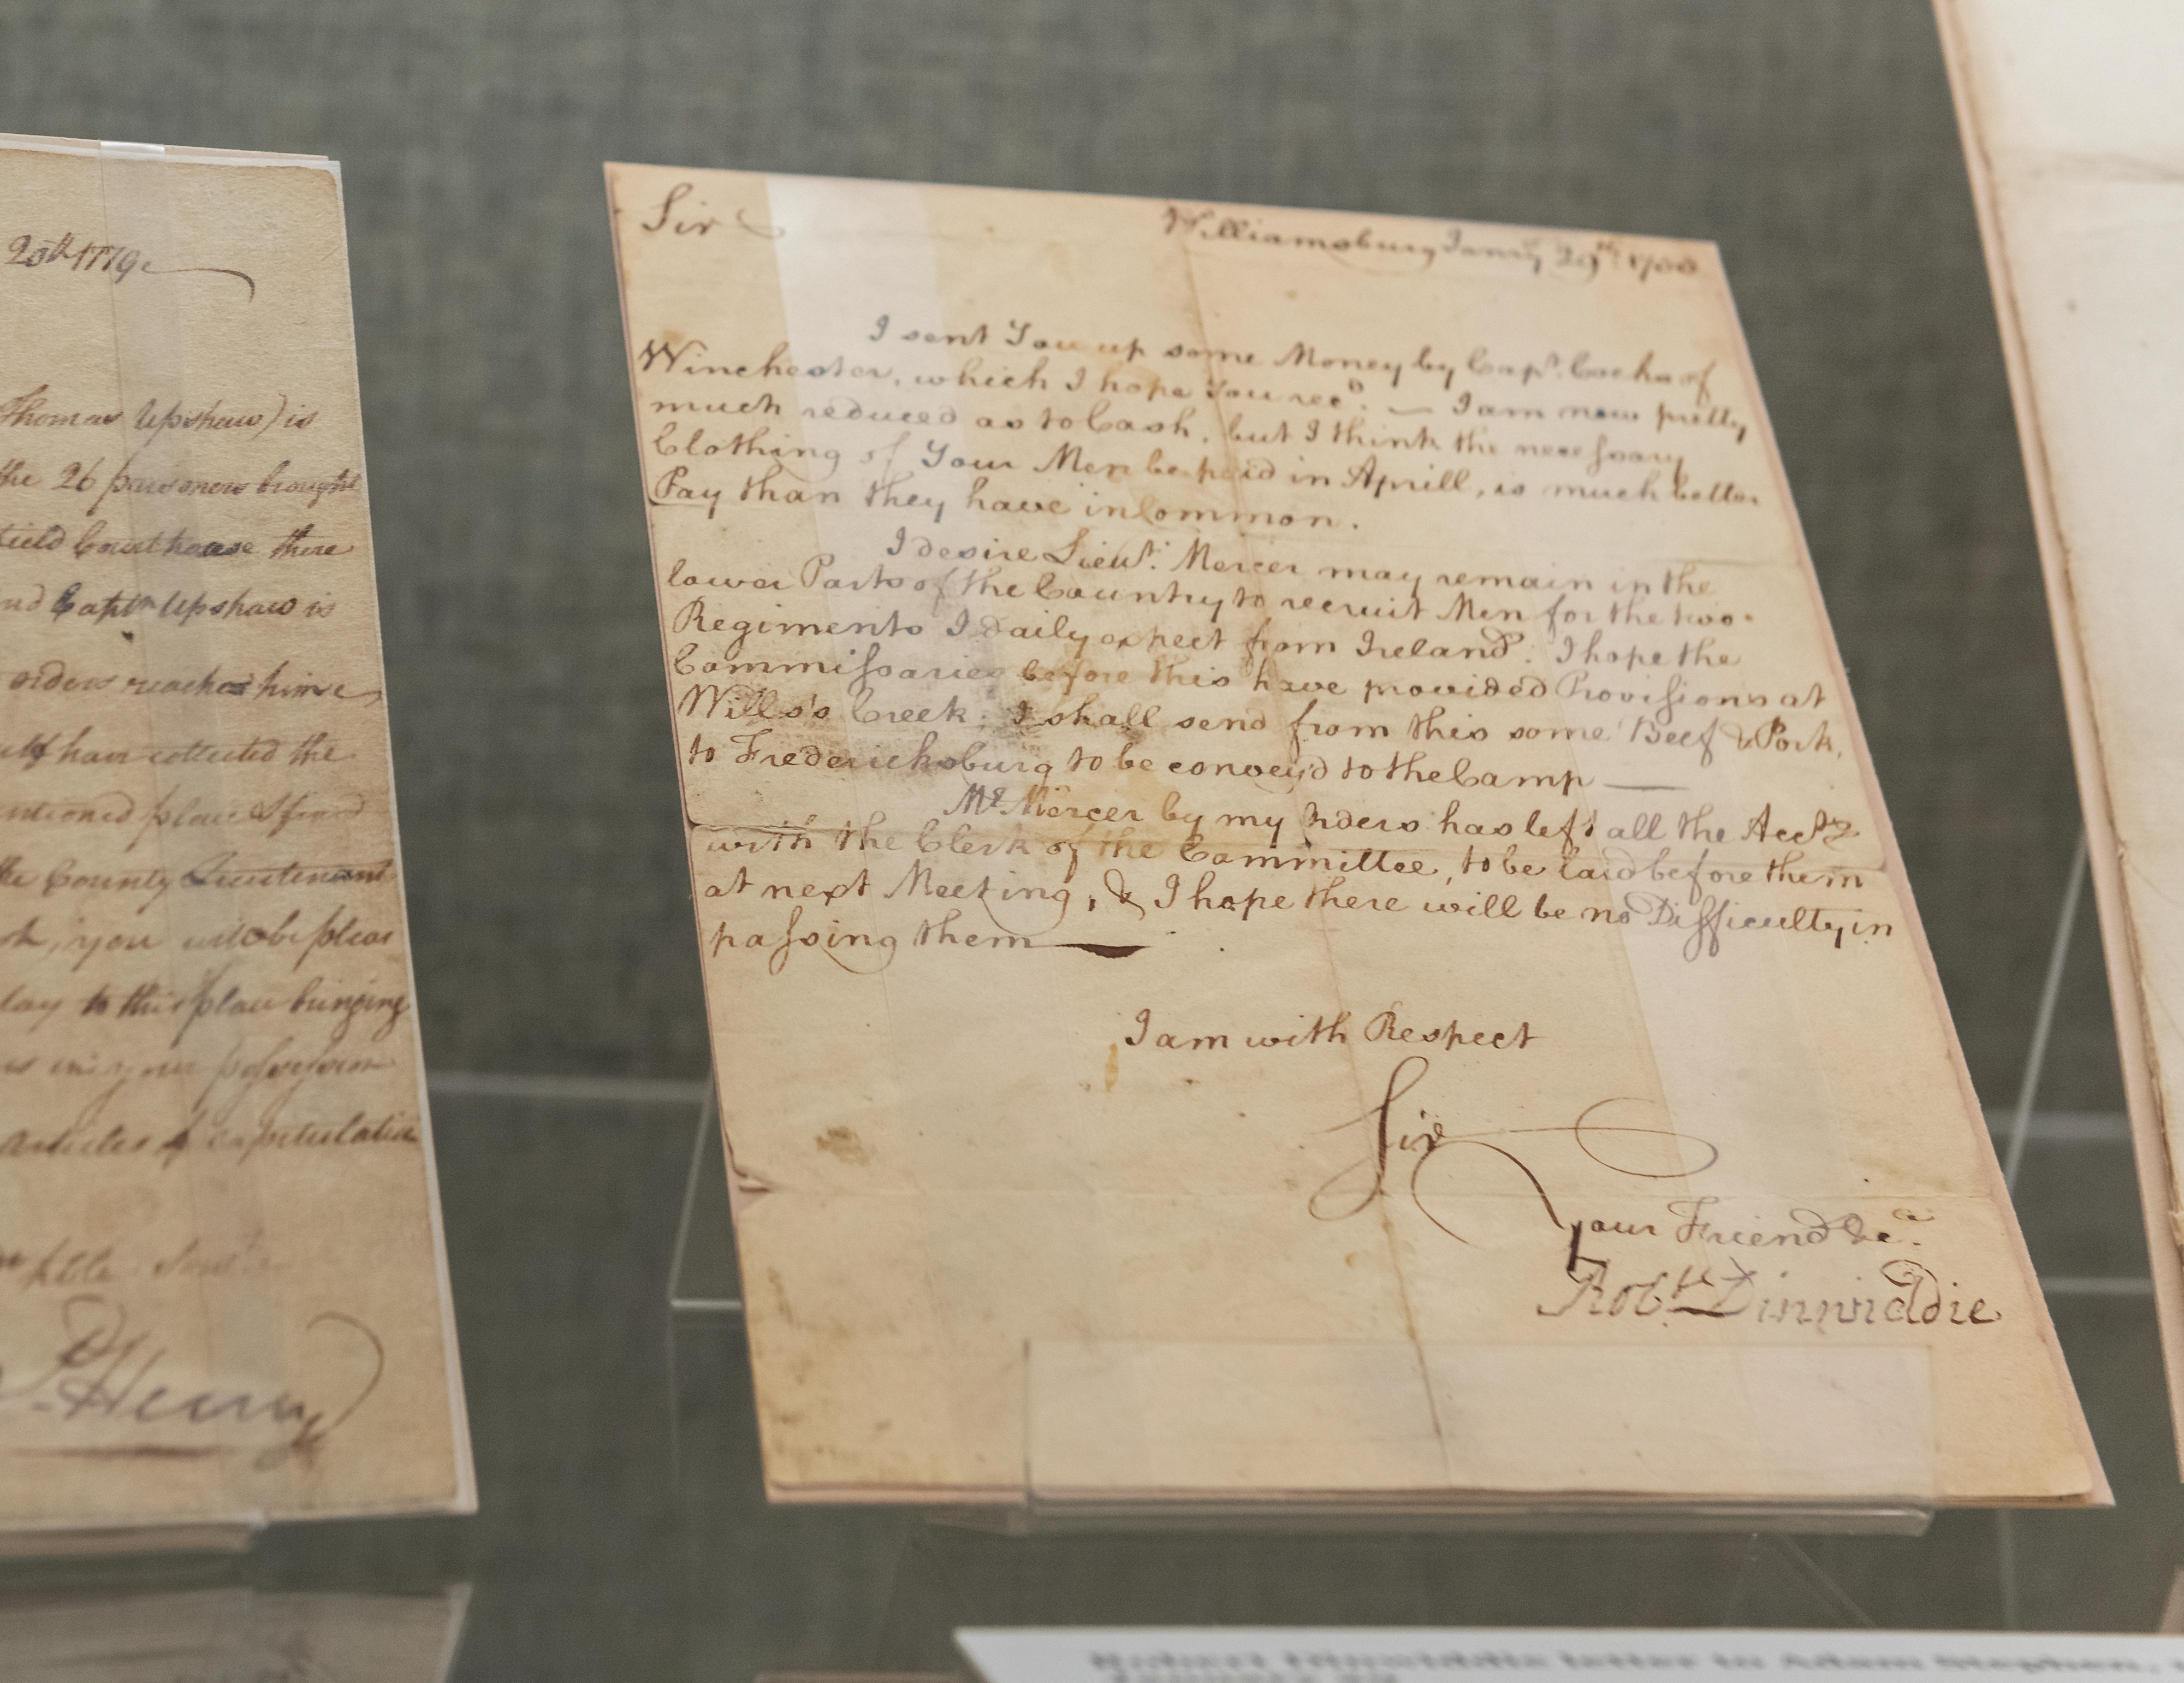 20th 1779
Thomas Upshaw) is
the 26 prisoners brought
field Courthouse there
nd Captn Upshaw is
orders reached him
have collected the
mentioned place
the County Lieutenant
you will be pleas
to this place bringing
articles of capitulation
P. Henry
Sir
Williamsburg Janry 29th 1755
I sent You up some Money by Capt. Cocks of
Winchester, which I hope You recd. — I am now pretty
much reduced as to Cash, but I think the necessary
Clothing of Your Men be paid in Aprill, is much better
Pay than they have in Common.
I desire Lieut. Mercer may remain in the
lower Parts of the Country to recruit Men for the two
Regiments I daily expect from Ireland. I hope the
Commissaries before this have provided Provisions at
Wills's Creek; I shall send from this some Beef & Pork,
to Fredericksburg to be convey'd to the Camp —
Mr Mercer by my Orders has left all the Accts
with the Clerk of the Committee, to be laid before them
at next Meeting, & I hope there will be no Difficulty in
passing them —
I am with Respect
Sir
Your Friend &ca.
Robt Dinwiddie
Robert Dinwiddie letter to Adam Stephen,